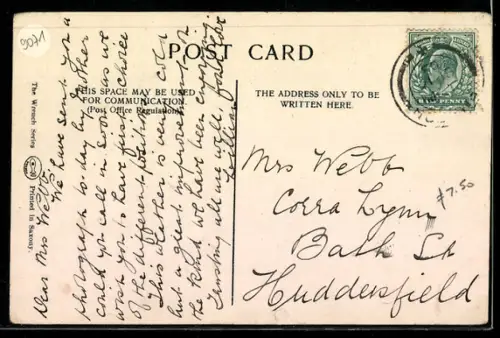 9071
POST CARD
THIS SPACE MAY BE USED
FOR COMMUNICATION.
(Post Office Regulation).
THE ADDRESS ONLY TO BE
WRITTEN HERE.
HALF PENNY
The Wrench Series
Printed in Saxony.
Dear Mrs Webb
We have sent you a
photograph to day by Mother
could you call in soon as we
wish you to have just choice
of the different positions
This weather is very cold
but a great improvement on
the kind we have been enjoying
Trusting all are well, fond love
Lillian
Mrs Webb
Corra Lynn
Bath St
Huddersfield
£7.50